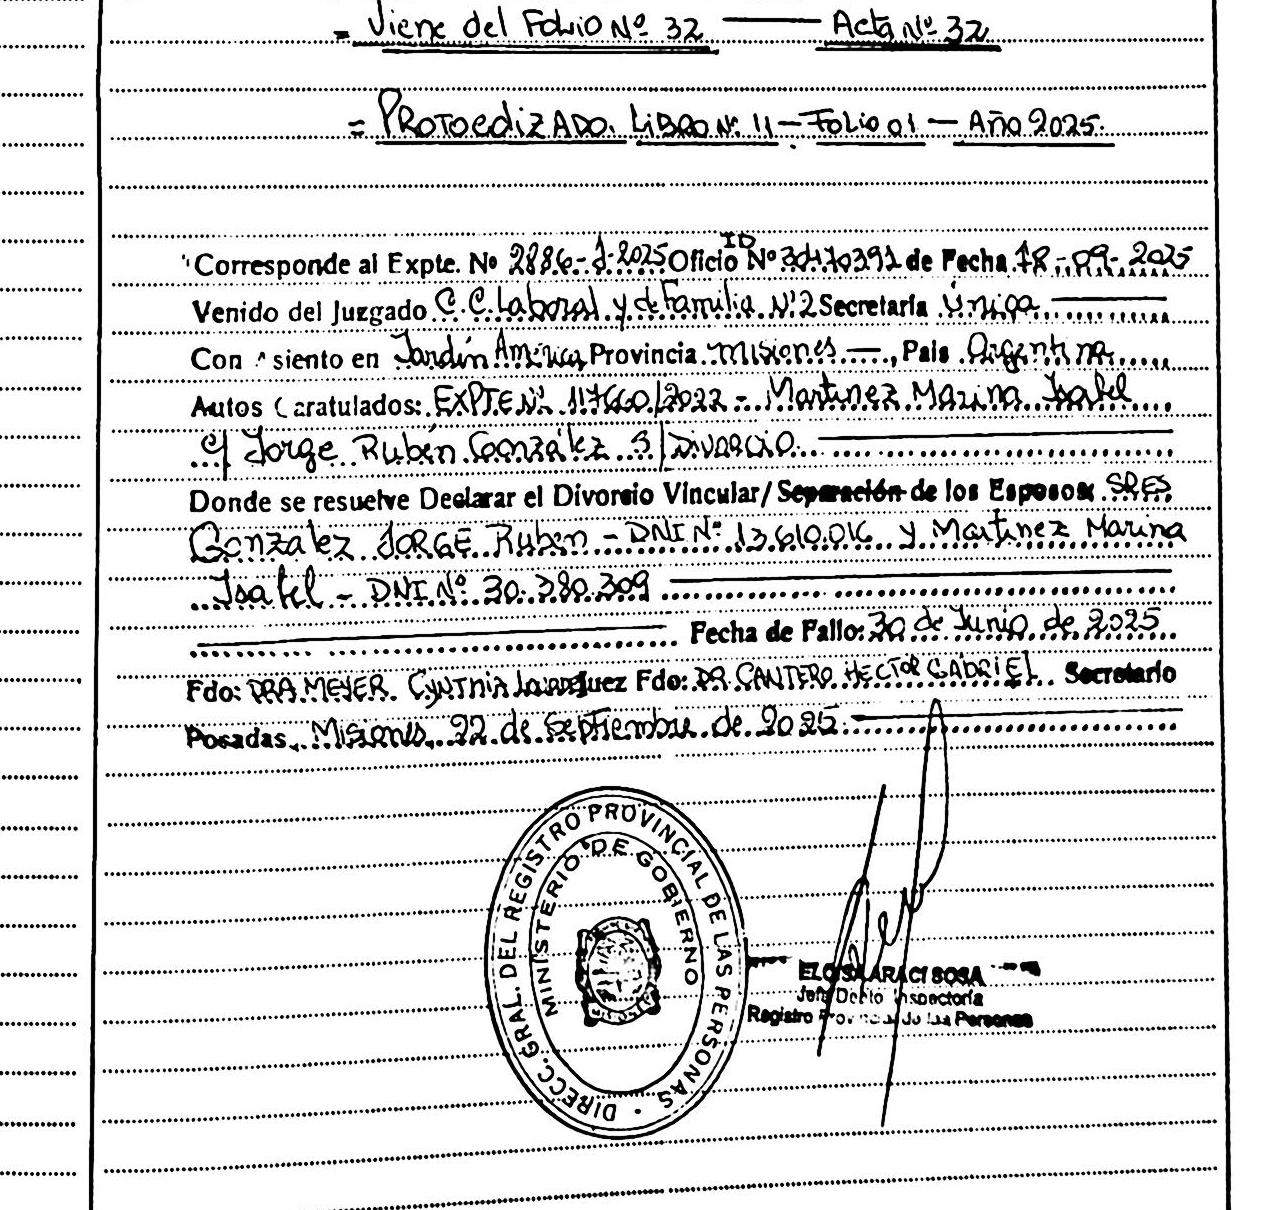 = Viene del Folio Nº 32 — Acta Nº 32
= Protocolizado. Libro Nº 11 – Folio 01 – Año 2025.
Corresponde al Expte. Nº 2886-J-2025 Oficio ID Nº 30470391 de Fecha 18-09-2025
Venido del Juzgado C.C. Laboral y de Familia Nº 2 Secretaría Única
Con Asiento en Jardín América Provincia Misiones —, País Argentina
Autos Caratulados: EXPTE Nº 117660/2022 - Martinez Marina Isabel
C/ Jorge Rubén González S/ Divorcio
Donde se resuelve Declarar el Divorcio Vincular/ Separación de los Esposos: SRES
Gonzalez JORGE Ruben - DNI Nº 13.610.016 y Martinez Marina
Isabel - DNI Nº 30.380.309
Fecha de Fallo: 30 de Junio de 2025
Fdo: DRA MEYER. Cynthia Fdo: DR CANTERO HECTOR GABRIEL Secretario
Posadas, Misiones, 22 de Septiembre de 2025.
DIRECC. GRAL. DEL REGISTRO PROVINCIAL DE LAS PERSONAS
MINISTERIO DE GOBIERNO
ELOISA ARACI SOSA
Jefa Depto Inspectoría
Registro Provincial de las Personas